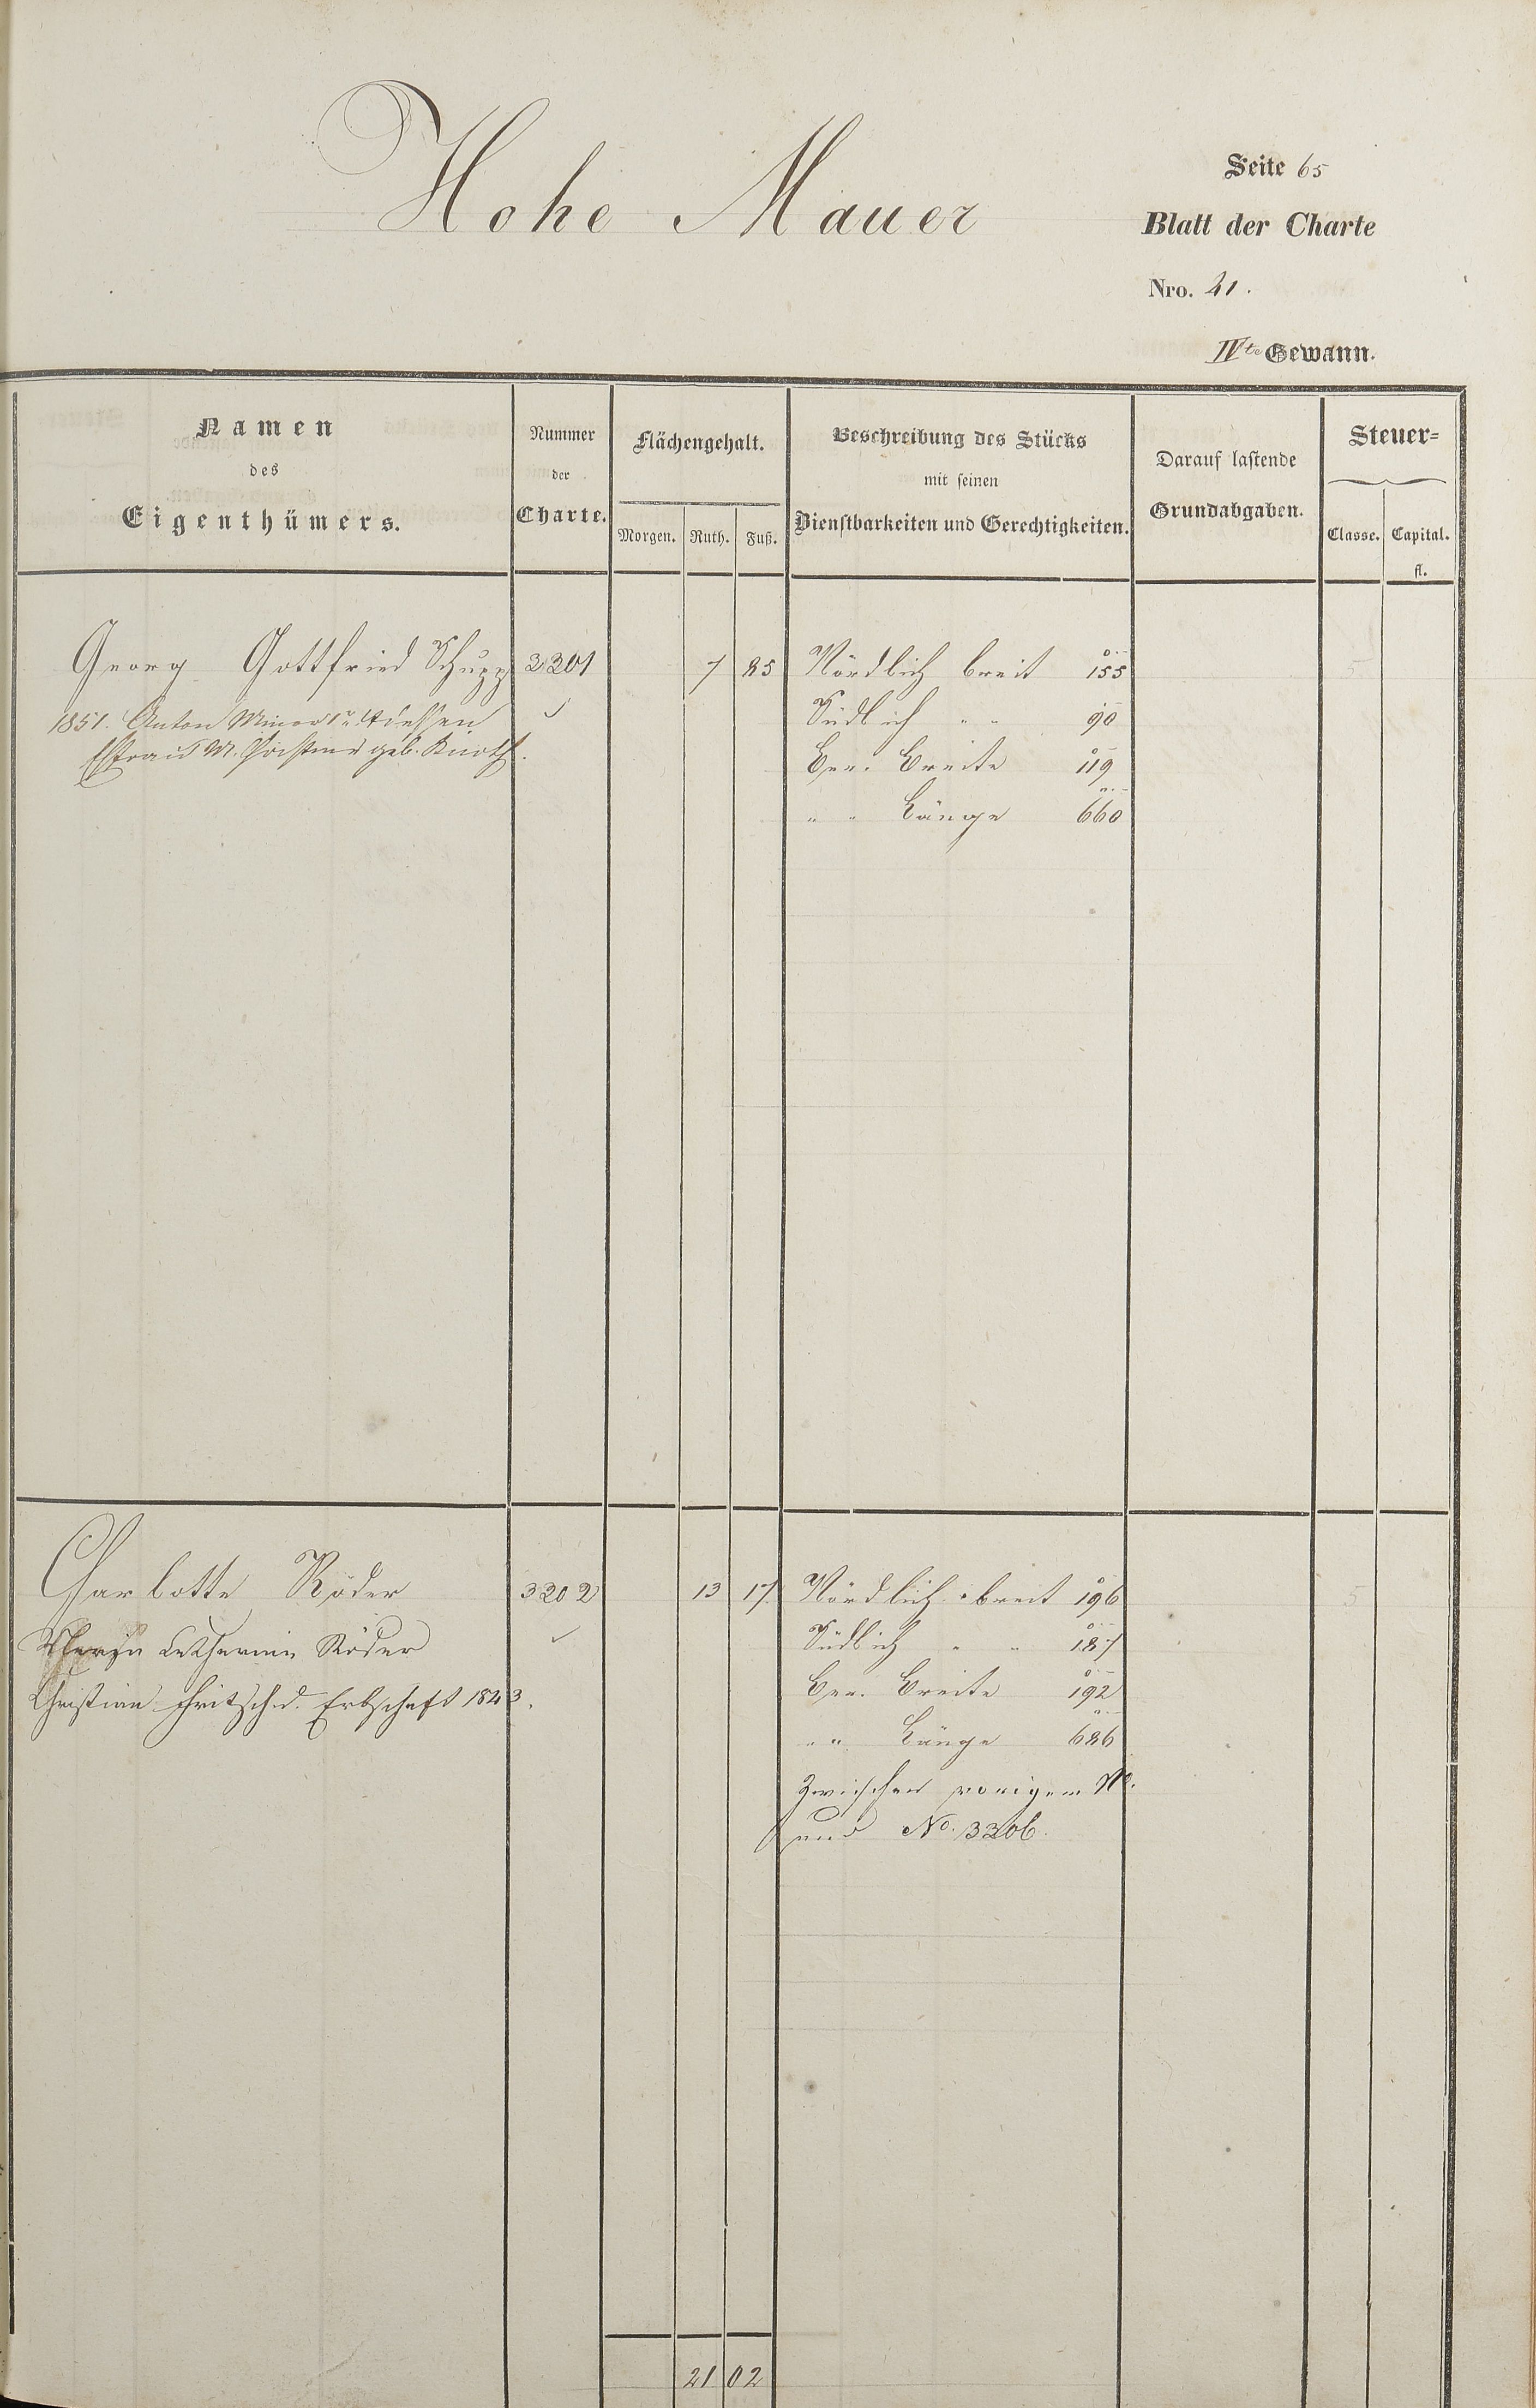 Hohe Mauer
Seite 65
Blatt der Charte
Nro. 21.
IVte Gewann.
Namen
des
Eigenthümers.
Nummer
der
Charte.
Flächengehalt.
Morgen. Ruth. Fuß.
Beschreibung des Stücks
mit seinen
Dienstbarkeiten und Gerechtigkeiten.
Darauf lastende
Grundabgaben.
Steuer=
Classe. Capital.
fl.
Georg Gottfried Schupp 3201 7 85 Nördlich breit 155
1851. Anton Minor u. dessen Südlich " " 90
Ehefrau M. geb. Knoth. Ber. Breite 119
" " Länge 660
Charlotte Röder 3202 13 17 Nördlich breit 196
Catharine Röder Südlich " " 187
Christian Fritsch d. Erbschaft 1843. Ber. Breite 192
" " Länge 686
Zwischen vorigem No.
und No. 3206.
21 02